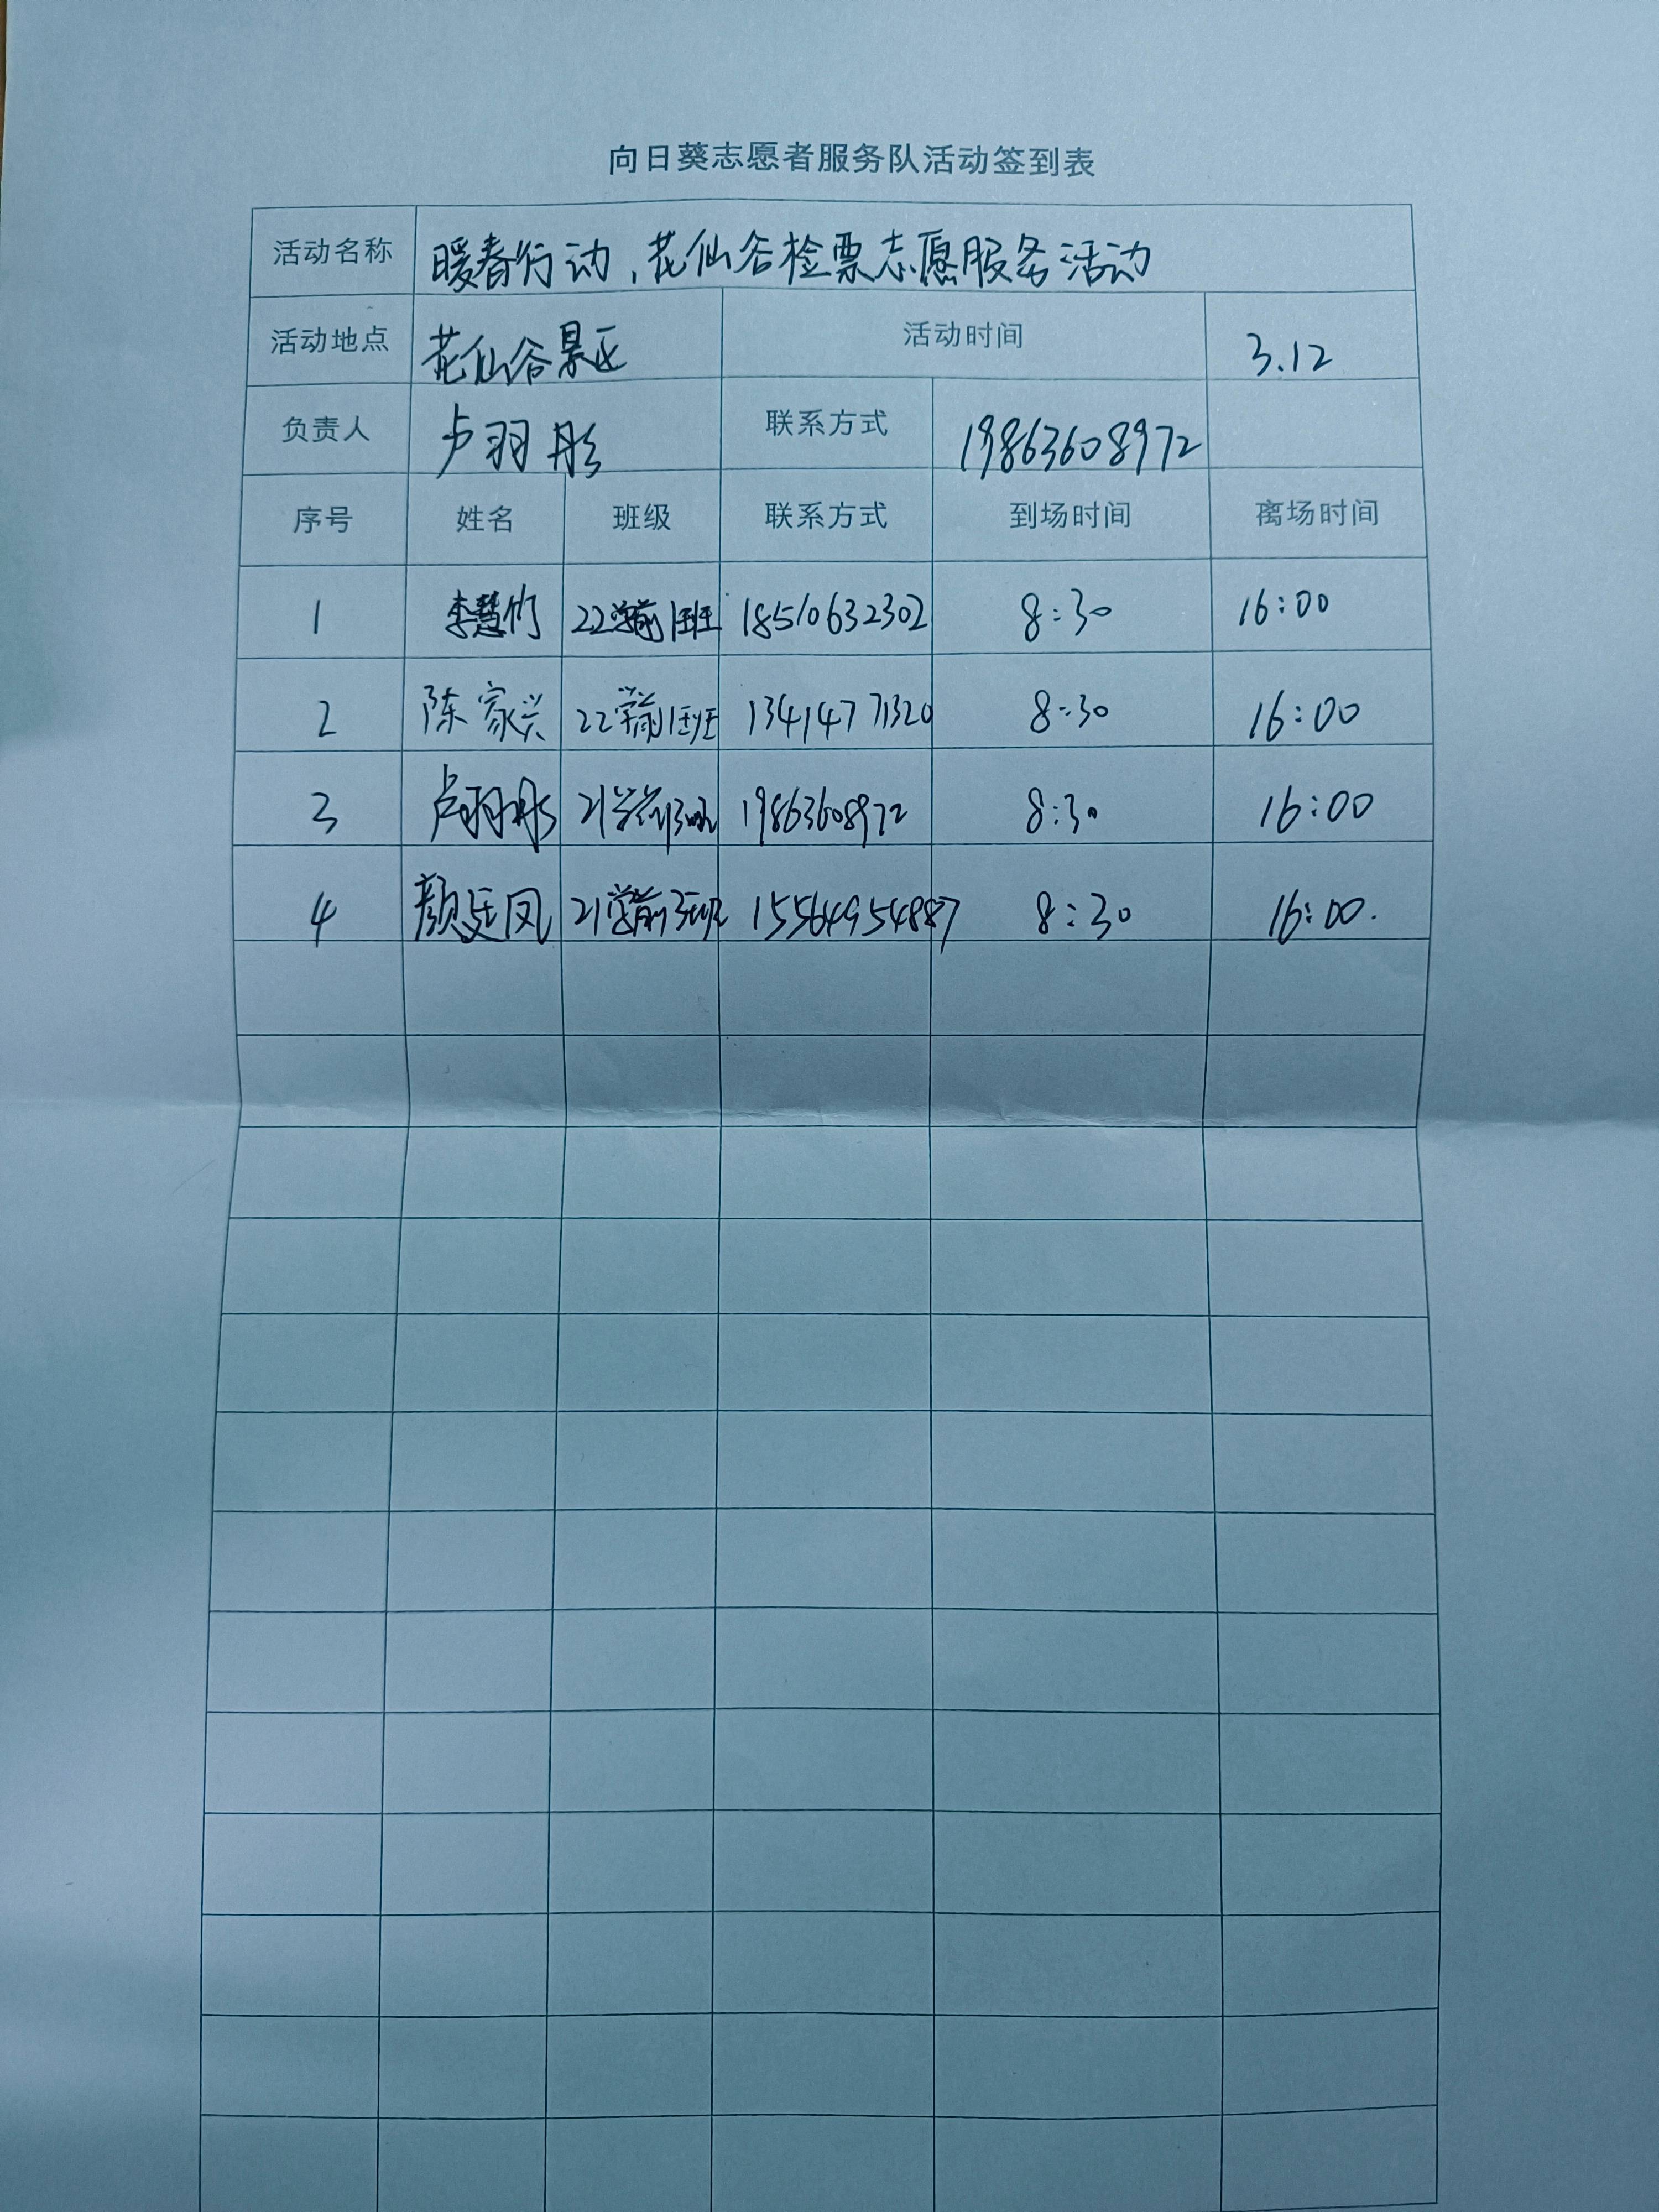 向日葵志愿者服务队活动签到表
活动名称 暖春行动,花仙谷检票志愿服务活动
活动地点 花仙谷景区 活动时间 3.12
负责人 卢羽彤 联系方式 19863608972
序号 姓名 班级 联系方式 到场时间 离场时间
1 李慧竹 22学前1班 18510632302 8:30 16:00
2 陈家兴 22学前1班 13414771320 8:30 16:00
3 卢羽彤 21学前3班 19863608972 8:30 16:00
4 颜廷凤 21学前3班 15564954887 8:30 16:00.